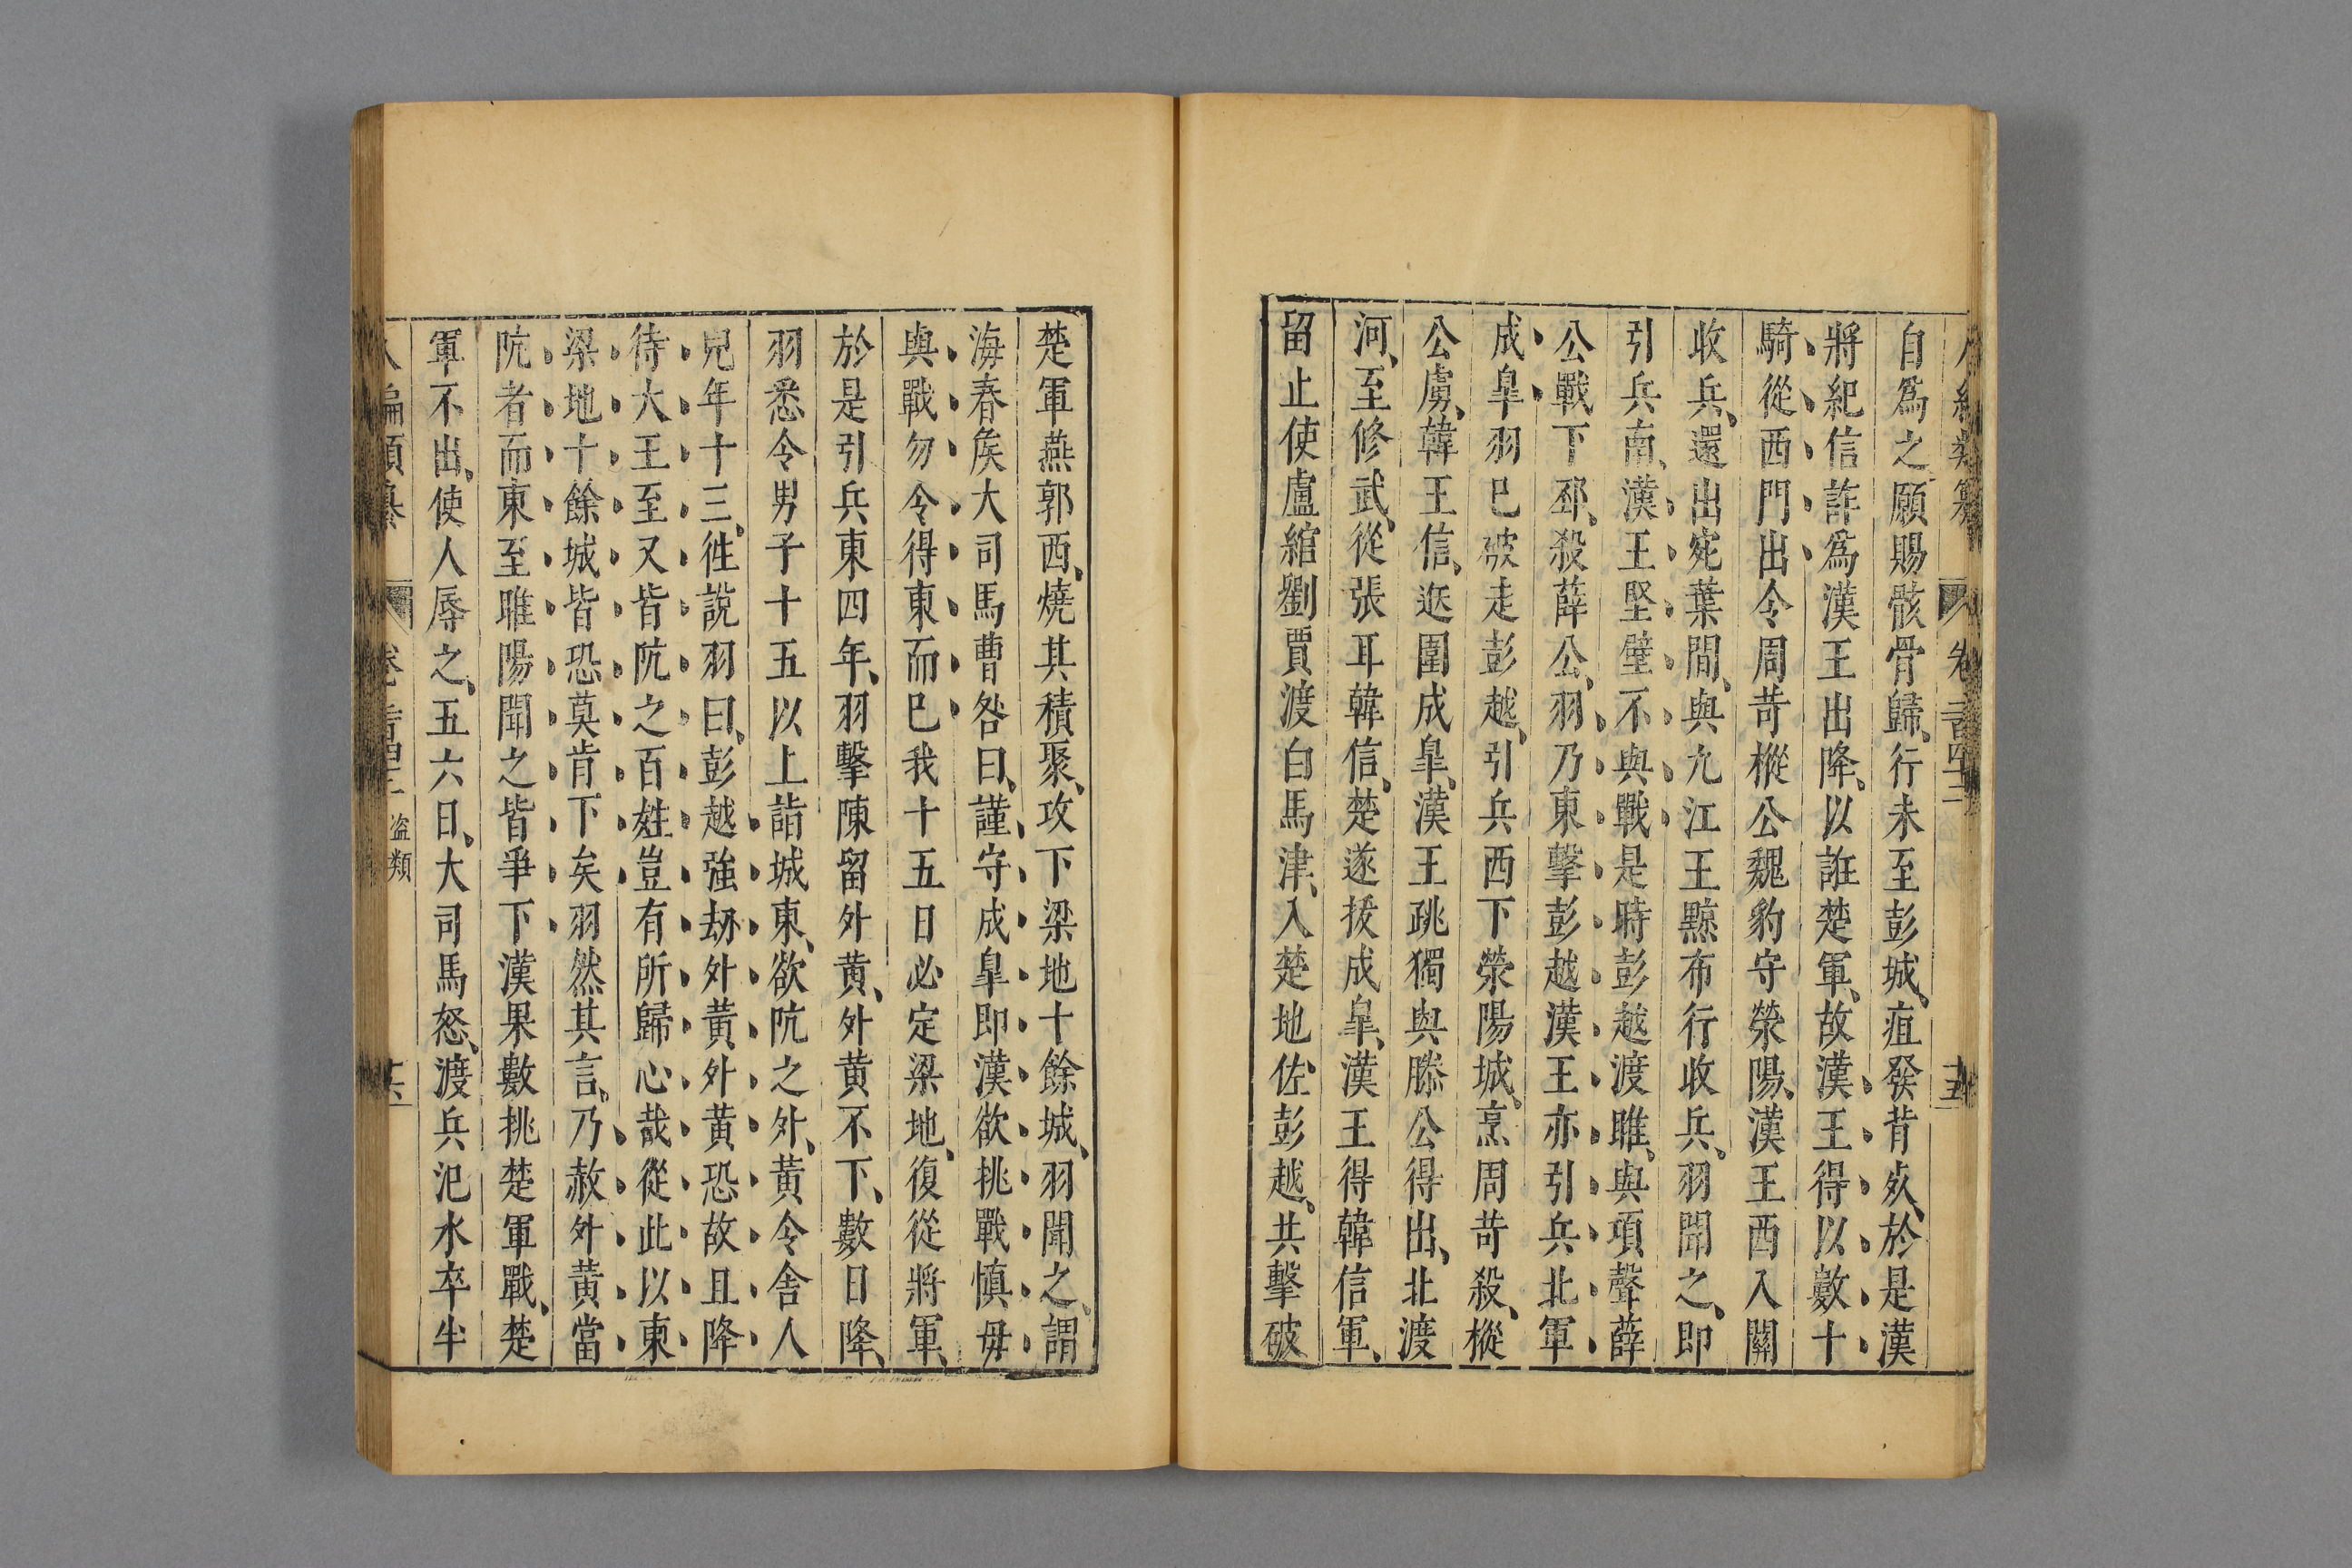 自爲之願賜骸骨歸、行未至彭城、疽發背死、於是漢
將紀信詐爲漢王出降、以誑楚軍、故漢王得以數十
騎從西門出令周苛樅公魏豹守滎陽、漢王西入關
收兵、還出宛葉間、與九江王黥布行收兵、羽聞之、即
引兵南、漢王堅壁不與戰是時彭越渡睢、與項聲薛
公戰下邳、殺薛公、羽乃東擊彭越漢王亦引兵北軍
成臯羽已破走彭越、引兵西下滎陽城、烹周苛殺、樅
公虜、韓王信、逃圍成臯、漢王跳獨與滕公得出、北渡
河、至修武、從張耳韓信、楚遂拔成臯、漢王得韓信軍、
留止使盧綰劉賈渡白馬津、入楚地佐彭越、共擊破
楚軍燕郭西、燒其積聚、攻下梁地十餘城、羽聞之、謂
海春矦大司馬曹咎曰、謹守成臯即漢欲挑戰愼毋
與戰勿令得東而已我十五日必定梁地、復從將軍、
於是引兵東四年、羽擊陳留外黃、外黃不下、數日降、
羽悉令男子十五以上詣城東、欲阬之外、黃令舍人
兒年十三、徃說羽曰、彭越強劫外黃外黃恐故且降
待大王至又皆阬之百姓豈有所歸心哉從此以東
梁地十餘城皆恐莫肯下矣羽然其言、乃赦外黃當
阬者而東至睢陽聞之皆爭下漢果數挑楚軍戰、楚
軍不出、使人辱之、五六日、大司馬怒、渡兵汜水卒半
盗類